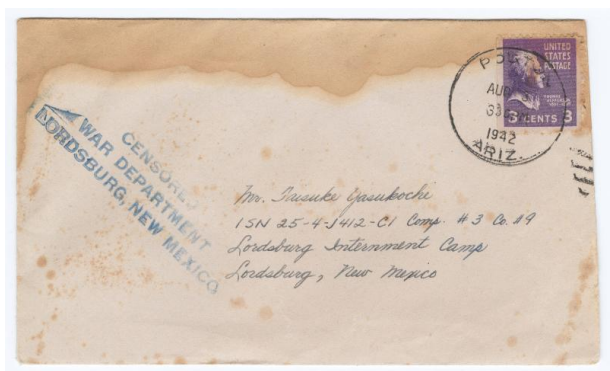 UNITED
STATES
POSTAGE
THOMAS
JEFFERSON
3 CENTS 3
POSTON
AUG
1942
ARIZ.
CENSORED
WAR DEPARTMENT
LORDSBURG, NEW MEXICO
Mr. Yasukochi
ISN 25-4-J412-CI Comp. #3 Co. #9
Lordsburg Internment Camp
Lordsburg, New Mexico